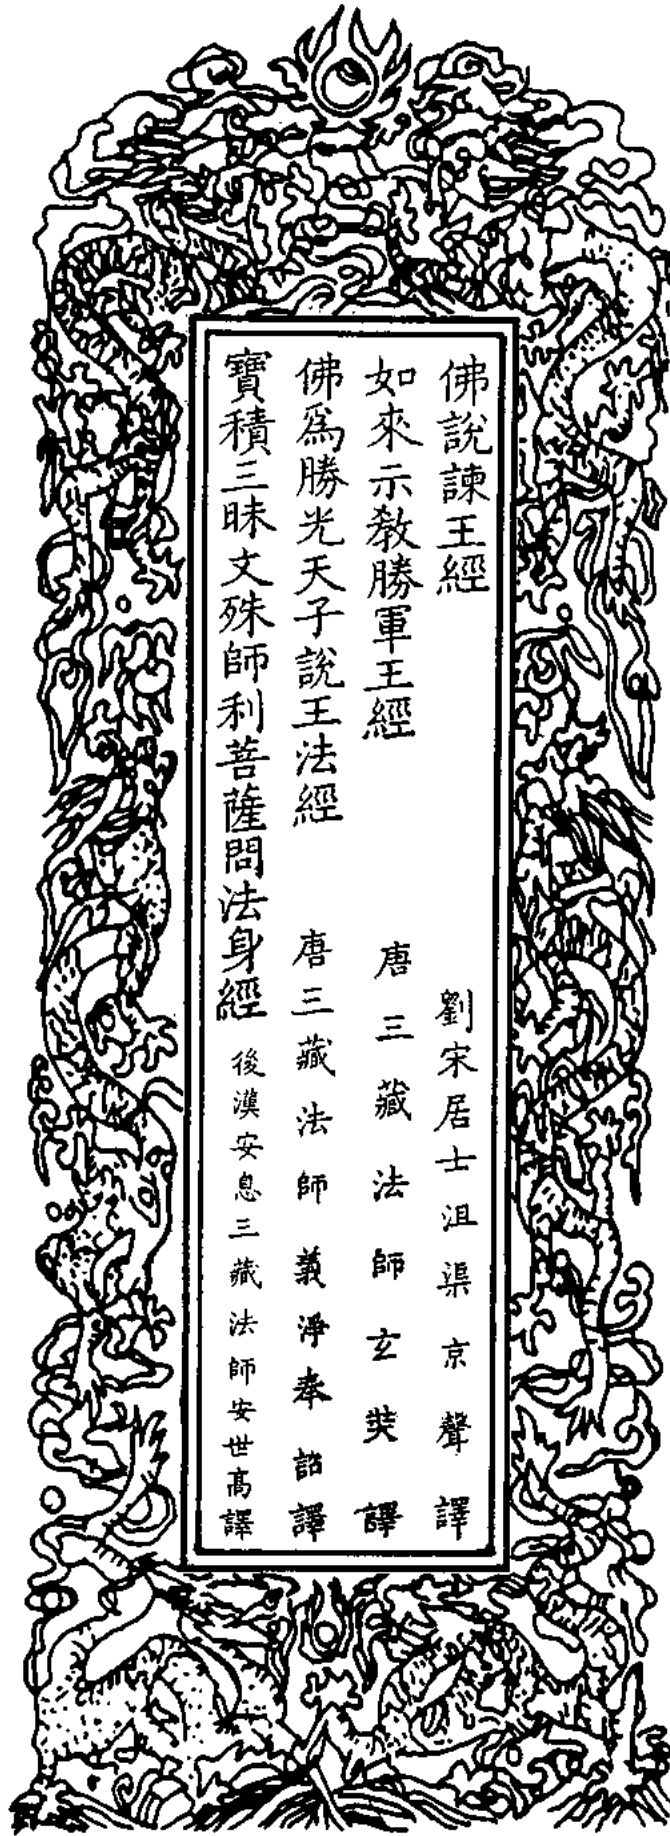 佛說諫王經 劉宋居士沮渠京聲譯
如來示教勝軍王經 唐三藏法師玄奘譯
佛爲勝光天子說王法經 唐三藏法師義淨奉詔譯
寶積三昧文殊師利菩薩問法身經 後漢安息三藏法師安世高譯